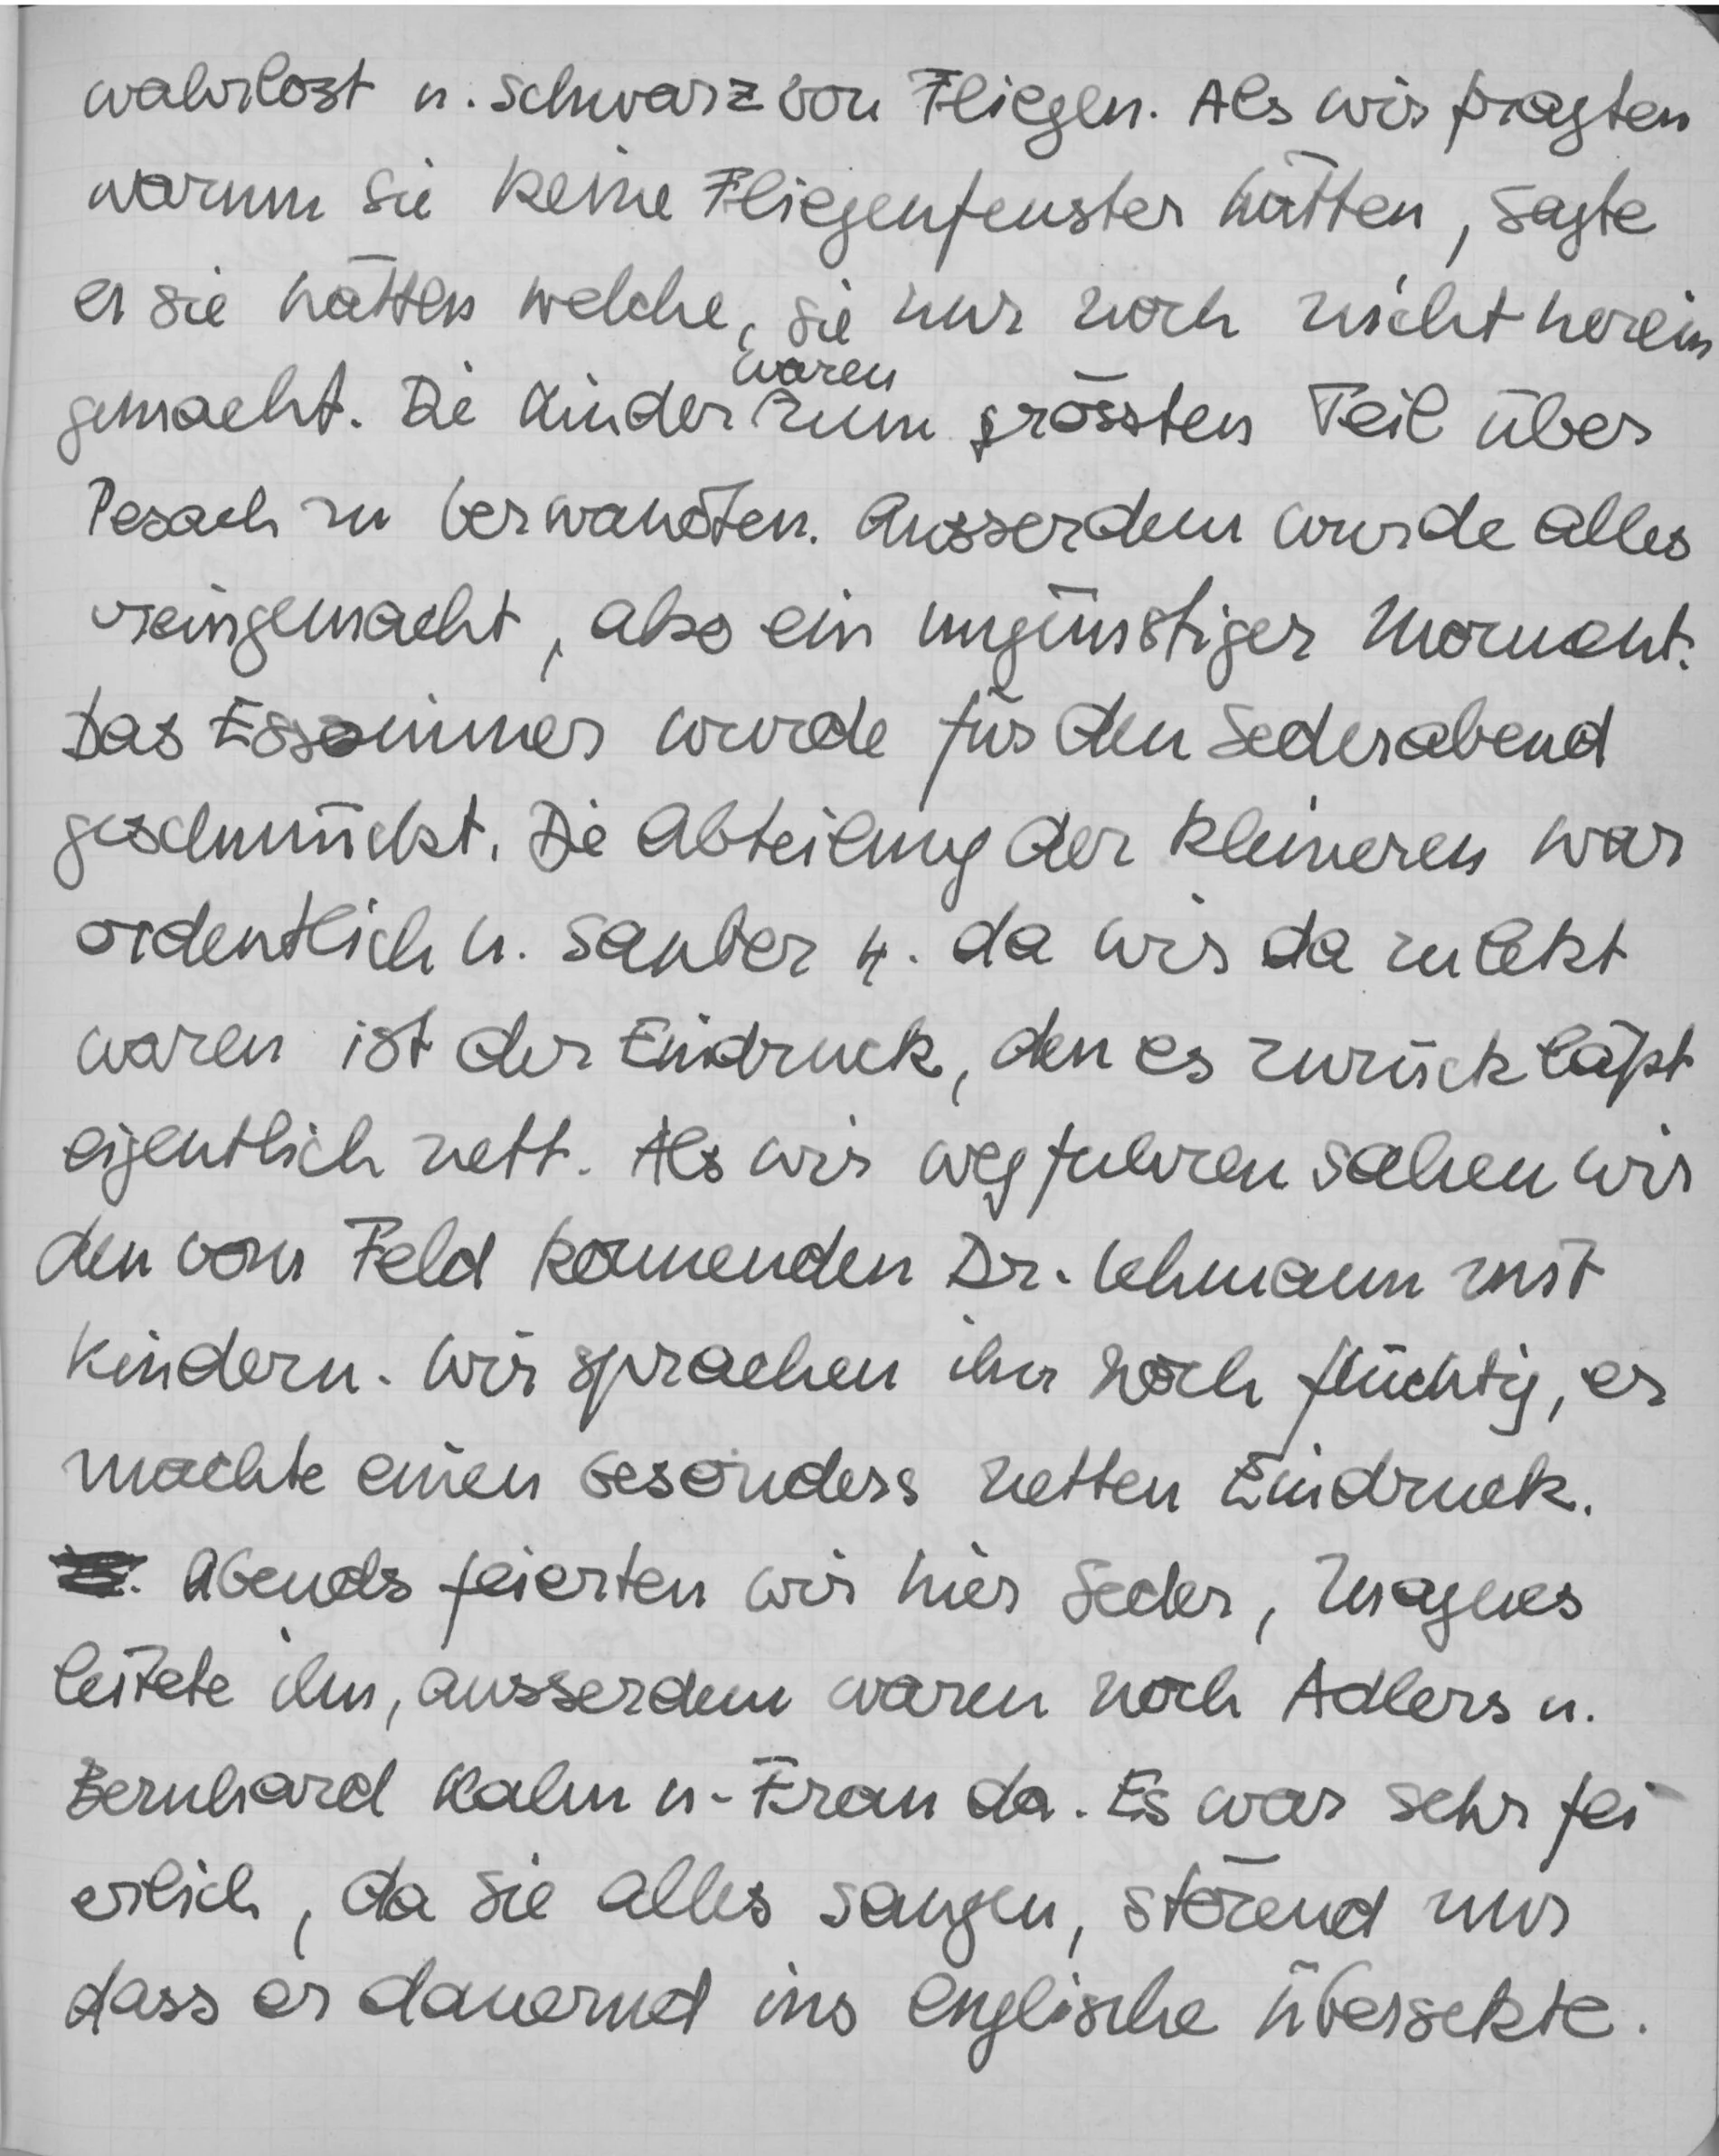 wahrlost u. schwarz von Fliegen. Als wir fragten
warum sie keine Fliegenfenster hätten, sagte
er sie hätten welche, sie nur noch nicht herein
gemacht. Die Kinder waren zum grössten Teil über
Pesach zu Verwandten. Ausserdem wurde alles
reingemacht, also ein ungünstiger Moment.
Das Esszimmer wurde für den Sederabend
geschmückt. Die Abteilung der kleineren war
ordentlich u. sauber u. da wir da zuletzt
waren ist der Eindruck, den es zurück läßt
eigentlich nett. Als wir wegfuhren sahen wir
den vom Feld kommenden Dr. Lehmann mit
Kindern. Wir sprachen ihn noch flüchtig, er
machte einen besonders netten Eindruck.
Abends feierten wir hier Seder, Magnes
leitete ihn, ausserdem waren noch Adlers u.
Bernhard Kahn u. Frau da. Es war sehr fei-
erlich, da sie alles sangen, störend nur
dass er dauernd ins englische übersetzte.